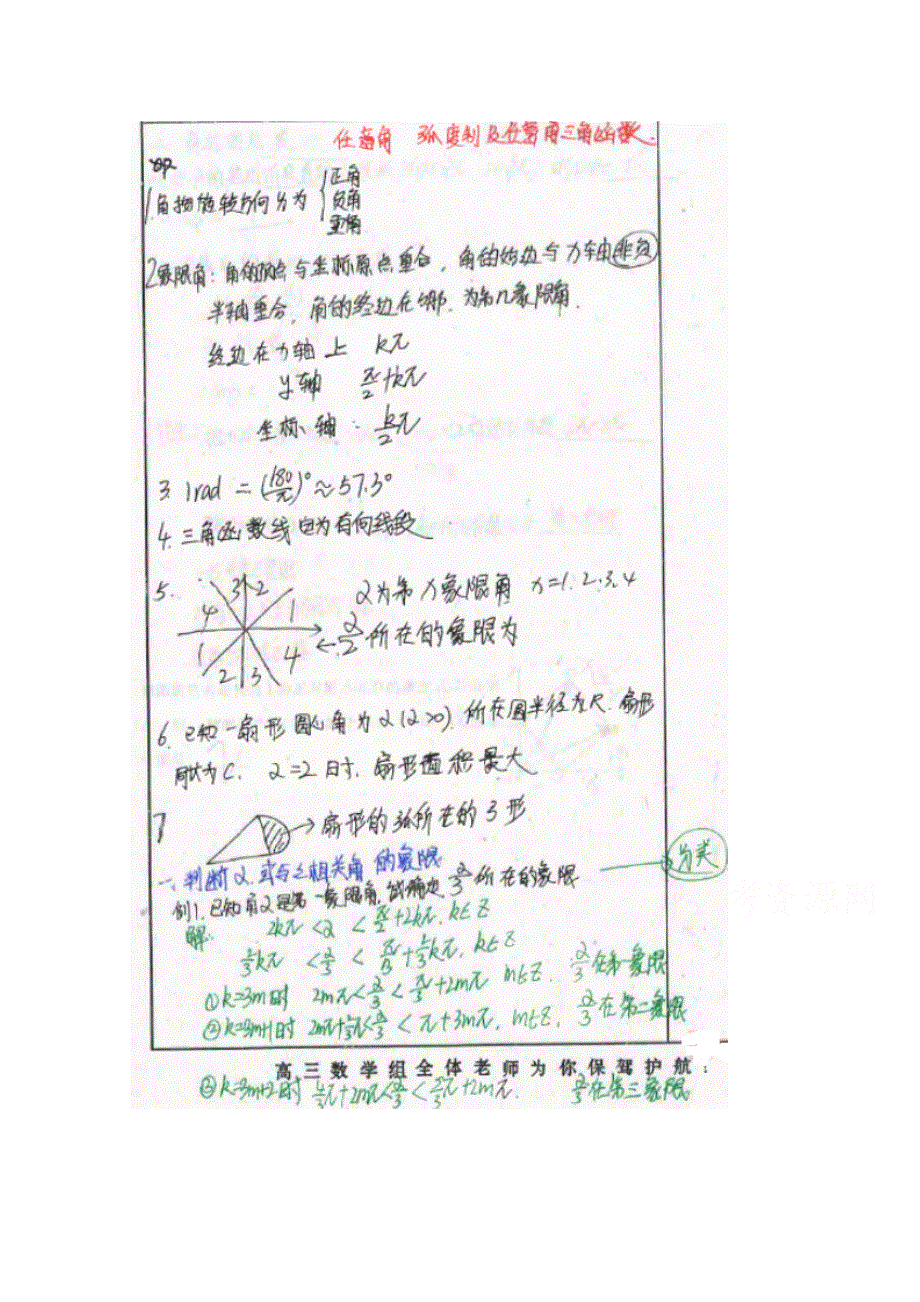 任意角 弧度制及任意角三角函数.
1.角按旋转方向分为 { 正角
负角
零角
2象限角:角的顶点与坐标原点重合,角的始边与x轴非负
半轴重合,角的终边在哪.为第几象限角.
终边在x轴上 kπ
y轴 π/2+kπ
坐标轴: k/2 π
3. 1rad = (180/π)° ≈57.3°
4.三角函数线 为有向线段
5. 4 3 2 1 α为第x象限角 x=1.2.3.4
1 2 3 4 ← α/2所在的象限为
6. 已知一扇形圆心角为α(α>0).所在圆半径为R.扇形
周长为C. α=2时.扇形面积最大
7 →扇形的弧所在的弓形
一、判断α.或与之相关角的象限 分类
例1.已知角α是第一象限角,试确定α/3所在的象限
解: 2kπ <α < π/2+2kπ.k∈Z
2/3kπ <α/3 < π/6+2/3kπ.k∈Z
①k=3m时 2mπ<α/3<π/6+2mπ m∈Z. α/3在第一象限
②k=3m+1时 α/3 m∈Z. α/3在第二象限
高三数学组全体老师为你保驾护航:
③k=3m+2时 4/3π+2mπ<α/3< +2mπ. α/3在第三象限
考资源网